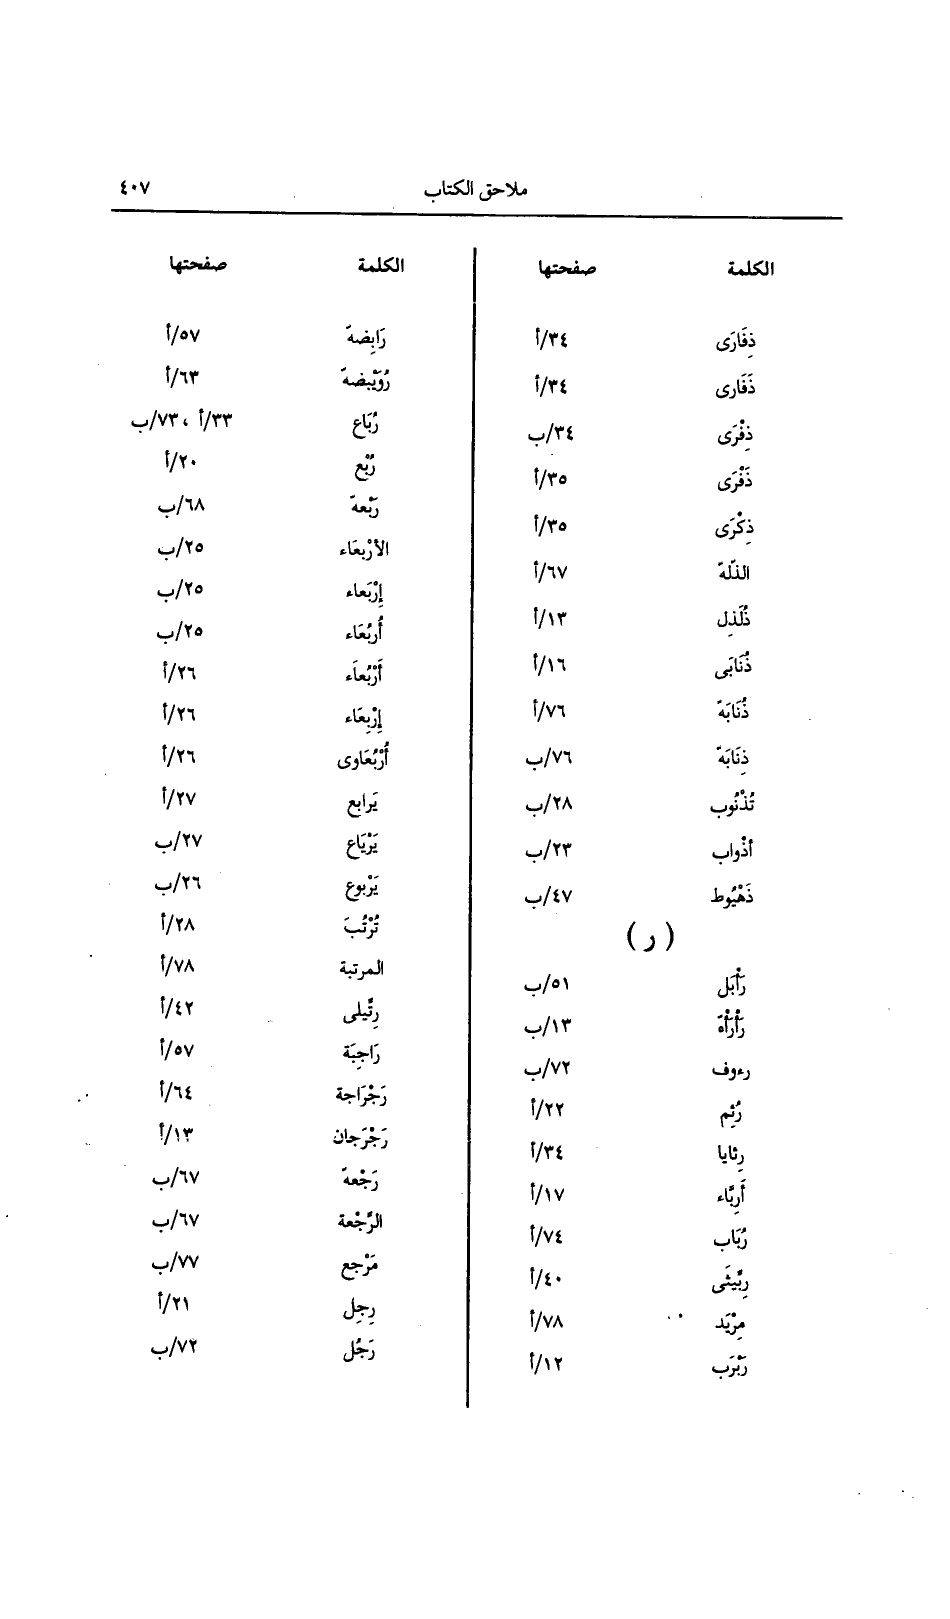 ملاحق الكتاب ٤٠٧
الكلمة صفحتها
ذِفَارَى ٣٤/أ
ذَفَارى ٣٤/أ
ذِفْرَى ٣٤/ب
ذَفْرَى ٣٥/أ
ذِكْرَى ٣٥/أ
الذلّة ٦٧/أ
ذُلَذِل ١٣/أ
ذُنَابَى ١٦/أ
ذُنَابَة ٧٦/أ
ذِنَابَة ٧٦/ب
تُذْنُوب ٢٨/ب
أذْواب ٢٣/ب
ذَهْيُوط ٤٧/ب
( ر )
رَأْبَل ٥١/ب
رَأْرَأْة ١٣/ب
رءوف ٧٢/ب
رُئِم ٢٢/أ
رِثايا ٣٤/أ
أَرِبَّاء ١٧/أ
رُبَاب ٧٤/أ
رِبِّيثَى ٤٠/أ
مِرْبَد ٧٨/أ
رَبْرَب ١٢/أ
الكلمة صفحتها
رَابِضة ٥٧/أ
رُوَيْبضة ٦٣/أ
رُبَاع ٣٣/أ ، ٧٣/ب
رُبْع ٢٠/أ
رَبْعة ٦٨/ب
الأرْبعَاء ٢٥/ب
إِرْبَعاء ٢٥/ب
أُربُعَاء ٢٥/ب
أَرْبُعاَء ٢٦/أ
إِرْبِعَاء ٢٦/أ
أُرْبُعَاوى ٢٦/أ
يَرابع ٢٧/أ
يَرْبَاع ٢٧/ب
يَرْبوع ٢٦/ب
تُرْتُبَ ٢٨/أ
المرتبة ٧٨/أ
رِتَّيلى ٤٢/أ
رَاجِبَة ٥٧/أ
رَجْرَاجة ٦٤/أ
رَجْرَجان ١٣/أ
رَجْعة ٦٧/ب
الرَّجْعة ٦٧/ب
مَرْجع ٧٧/ب
رِجِل ٢١/أ
رَجُل ٧٢/ب